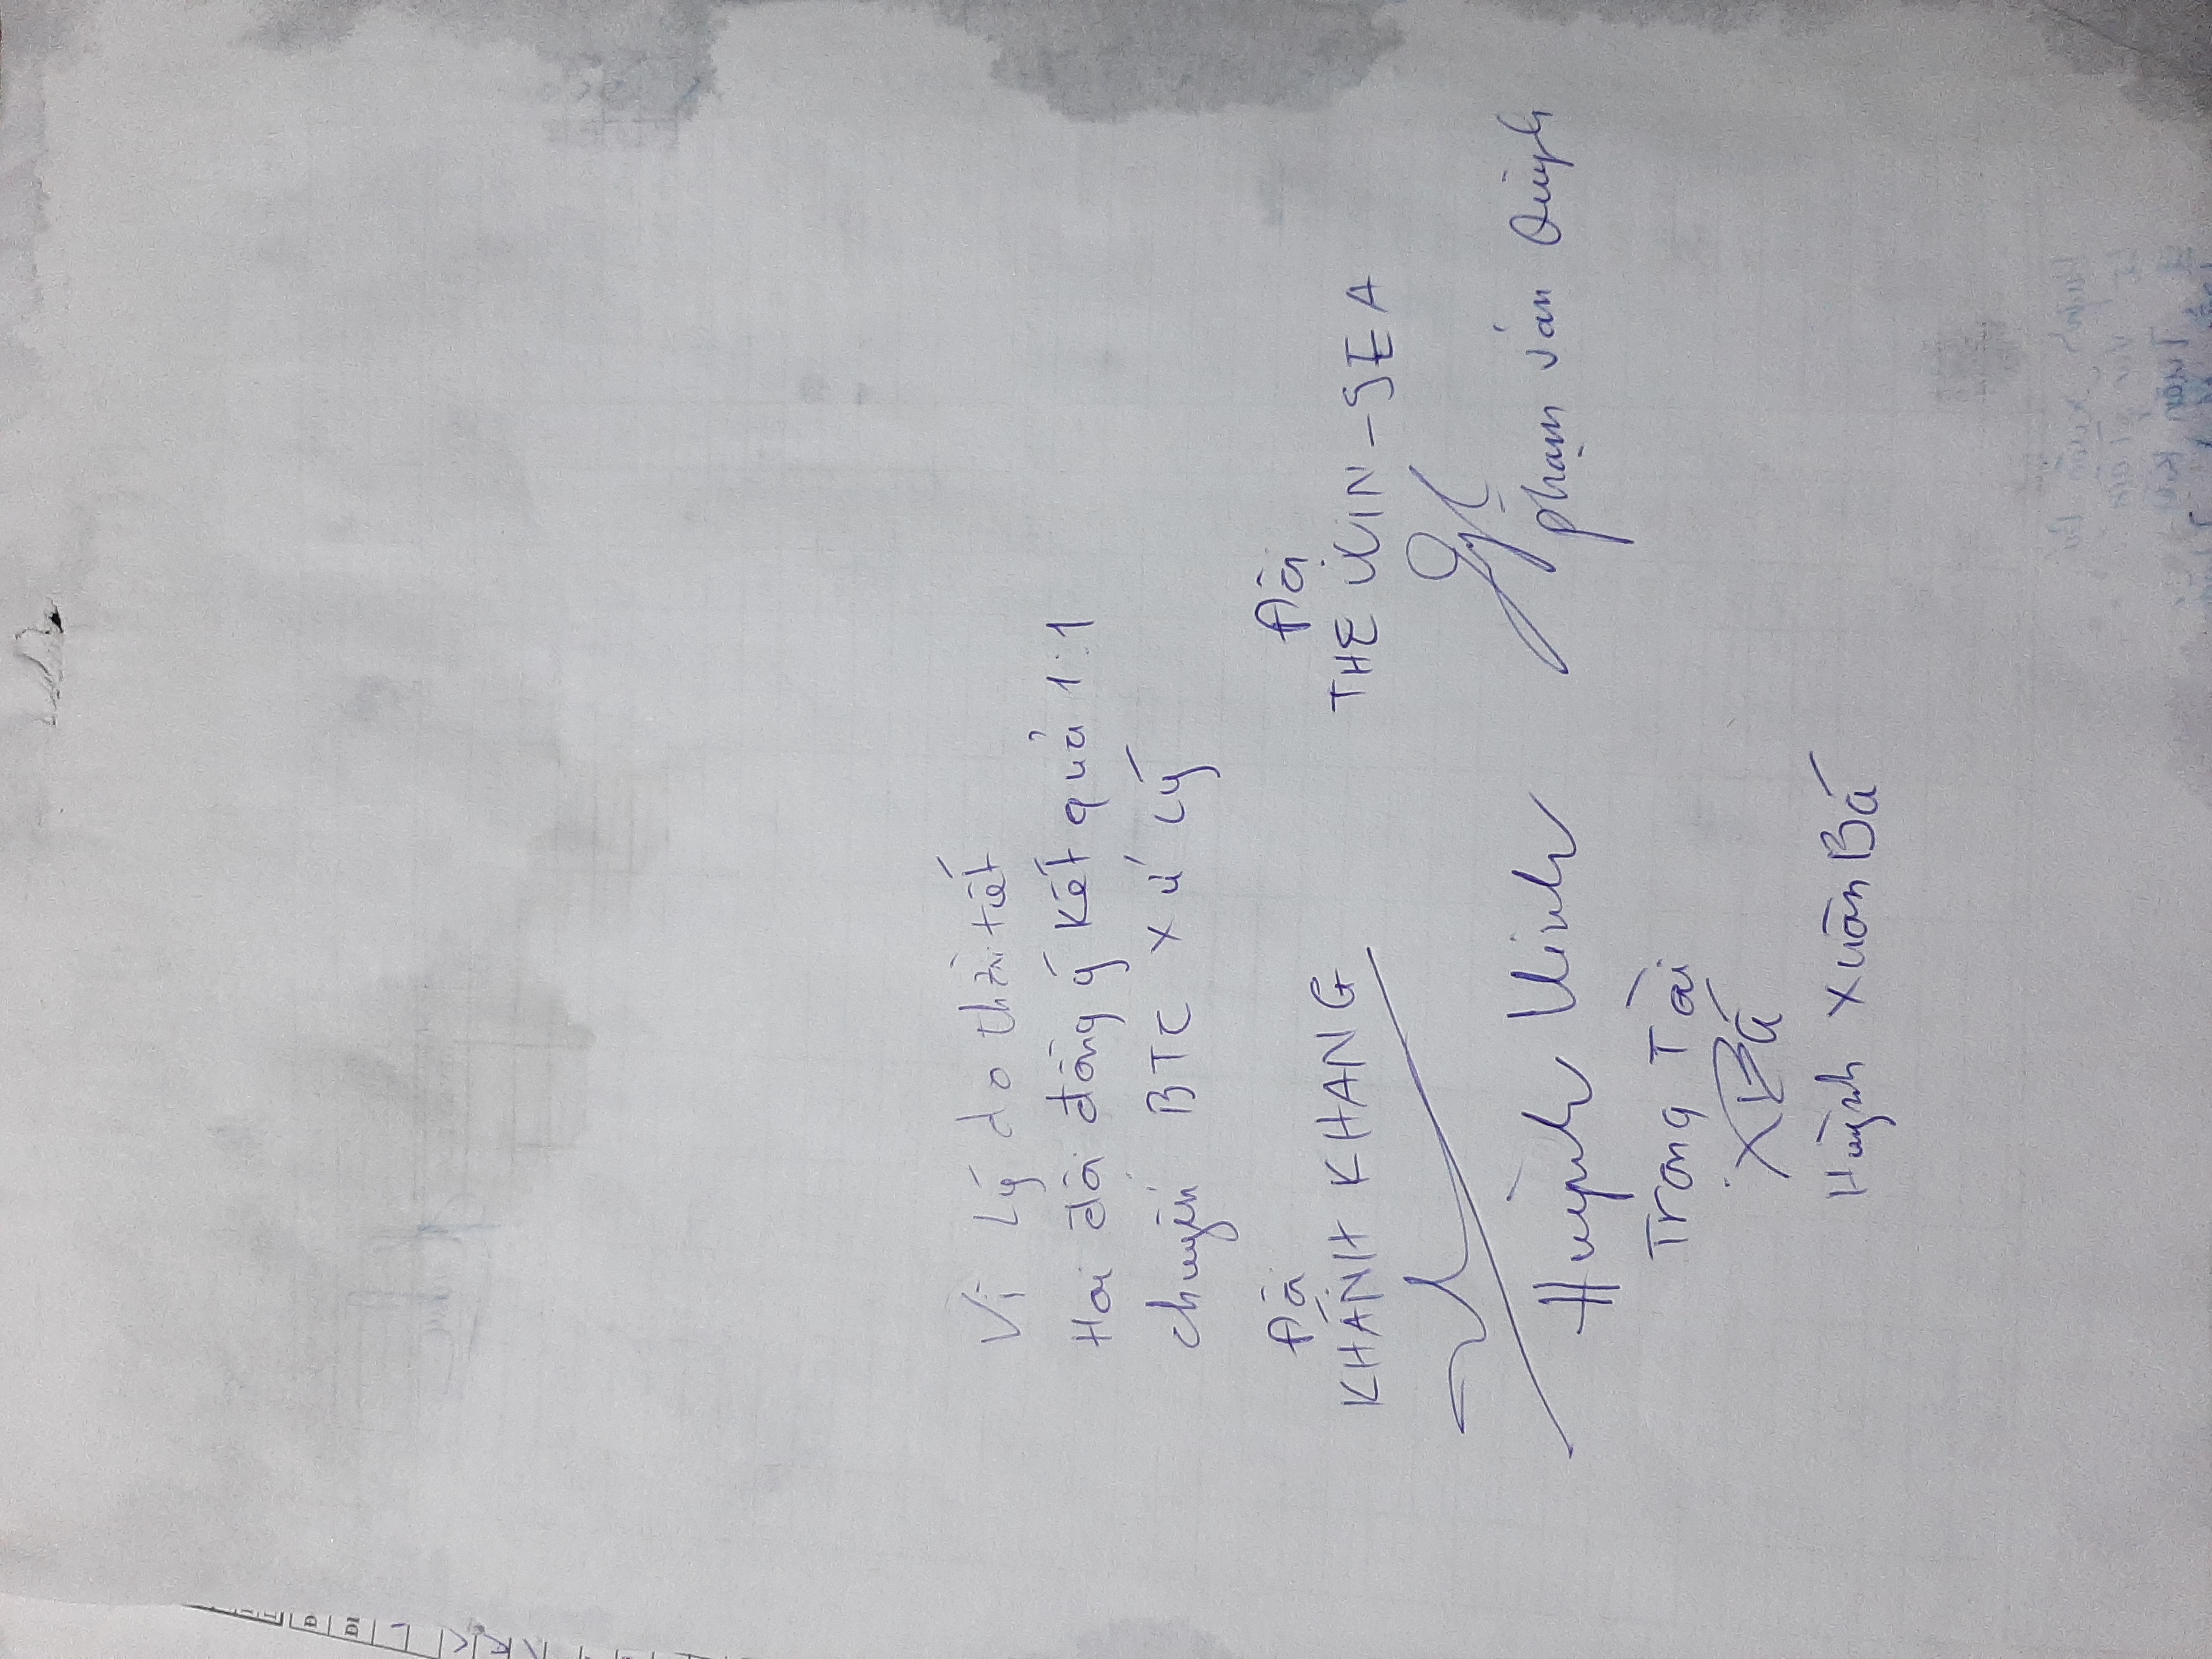 Vì Lý do thời tiết
Hai đội đồng ý kết quả 1:1
chuyển BTC xử lý
Đội
KHÁNH KHANG
Huỳnh Vinh
Đội
THE WIN-SEA
phạm văn Quỳnh
Trọng Tài
XBá
Huỳnh Xuân Bá